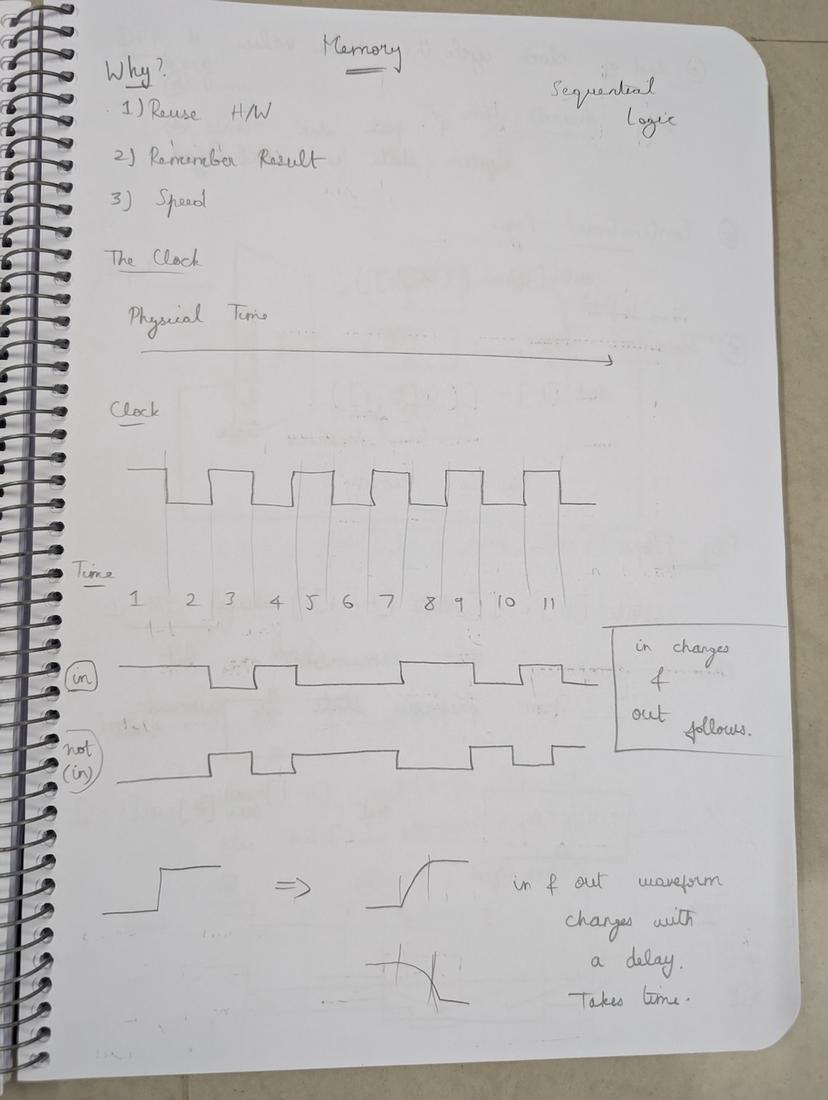 Memory
Why?
Sequential
Logic
1) Reuse H/W
2) Remember Result
3) Speed
The Clock
Physical Time
Clock
Time
1 2 3 4 5 6 7 8 9 10 11
in
in changes
&
out follows.
not
(in)
⇒
in & out waveform
changes with
a delay.
Takes time.